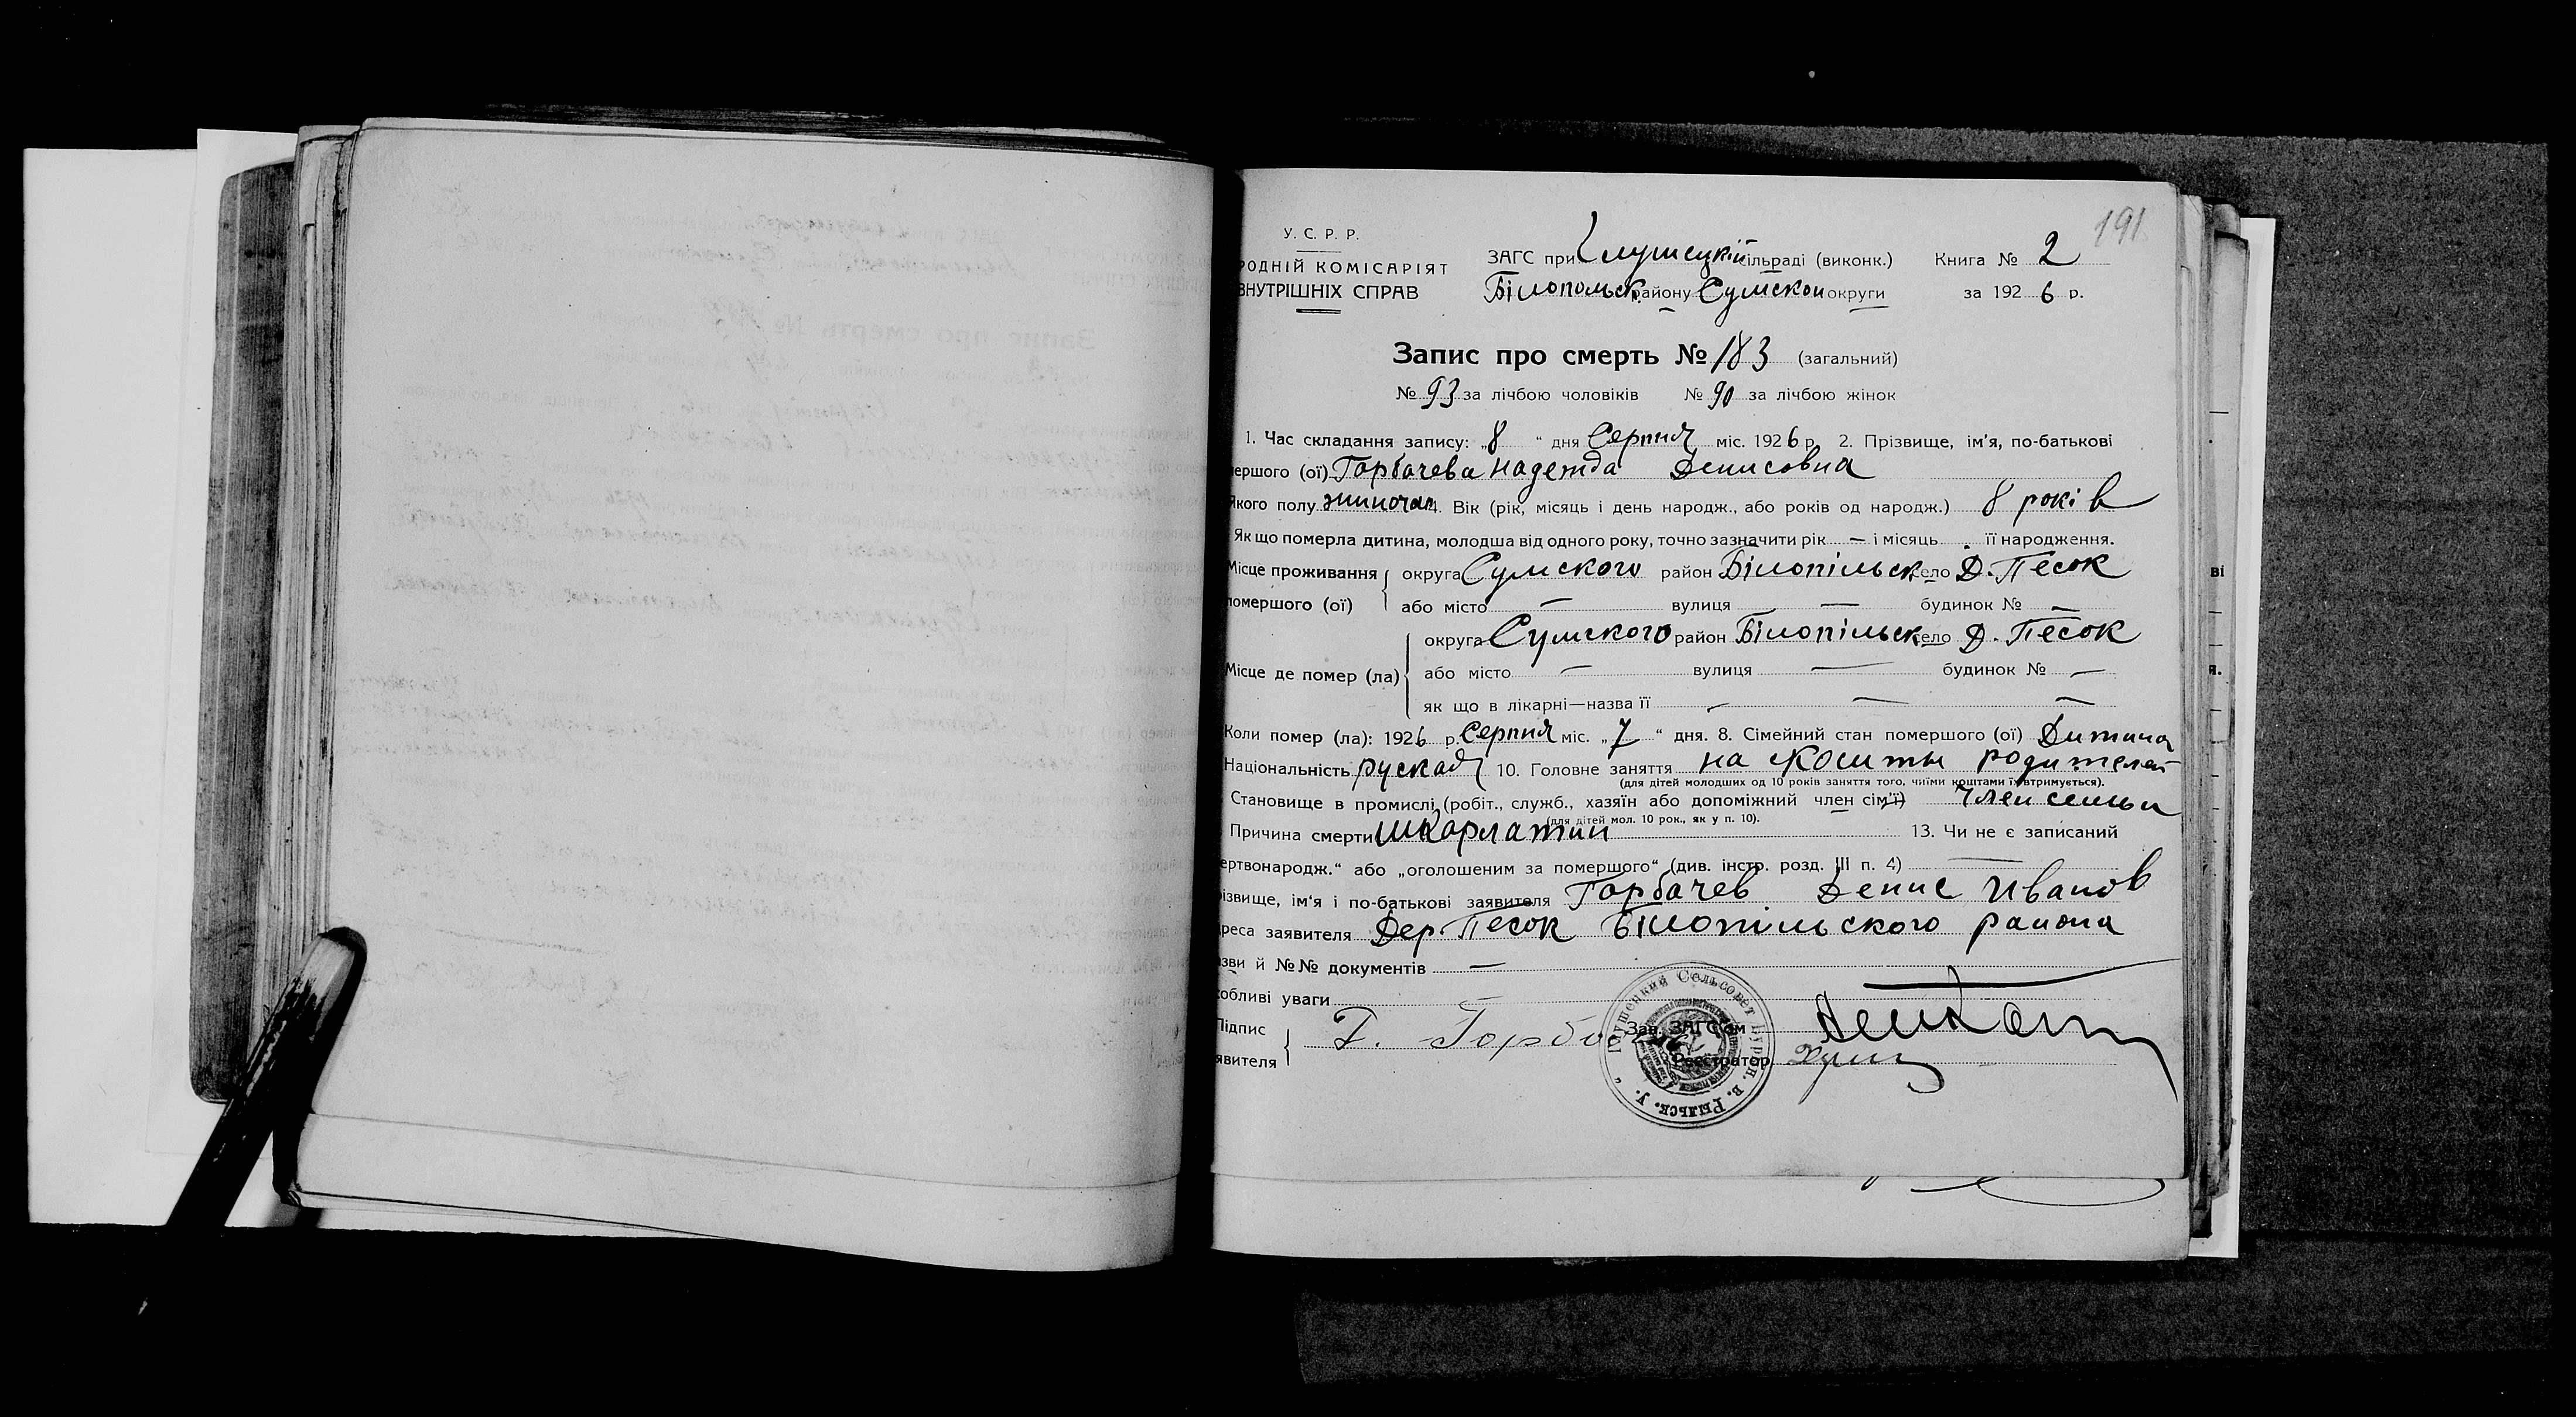 191
У. С. Р. Р.
РОДНІЙ КОМІСАРІЯТ
ВНУТРІШНІХ СПРАВ
ЗАГС при Глушецкій сільраді (виконк.) Книга № 2
Білопольск. району Сумской округи за 1926 р.
Запис про смерть № 183 (загальний)
№ 93 за лічбою чоловіків № 90 за лічбою жінок
1. Час складання запису: „8“ дня Серпня міс. 1926 р. 2. Прізвище, ім'я, по-батькові
ершого (ої) Горбачева Надежда Денисовна
Якого полу жиноча 4. Вік (рік, місяць і день народж., або років од народж.) 8 років
Як що померла дитина, молодша від одного року, точно зазначити рік — і місяць . її народження.
Місце проживання округа Сумского район Білопільск село Д. Песок
помершого (ої) або місто — вулиця — будинок № —
округа Сумского район Білопільск село Д. Песок
Місце де помер (ла) або місто — вулиця — будинок № —
як що в лікарні—назва її — — —
Коли помер (ла): 1926 р. Серпня міс. „7“ дня. 8. Сімейний стан помершого (ої) Дитина
Національність руская 10. Головне заняття на скошты родителей
(для дітей молодших од 10 років заняття того, чиїми коштами їх втримується).
Становище в промислі (робіт., служб., хазяїн або допоміжний член сім'ї) член семьи
(для дітей мол. 10 рок., як у п. 10).
Причина смерти шкарлатин 13. Чи не є записаний
ертвонародж.“ або „оголошеним за помершого“ (див. інстр. розд. III п. 4) —
різвище, ім'я і по-батькові заявителя Горбачев Денис Иванов
реса заявителя Дер. Песок Білопільского района
зви й №№ документів —
обливі уваги —
Підпис
явителя Д. Горбо
Зав. ЗАГС'ом
Реєстратор
Глушецкий Сельсовет Цурон. в. Рыльск. у.
ві
я.